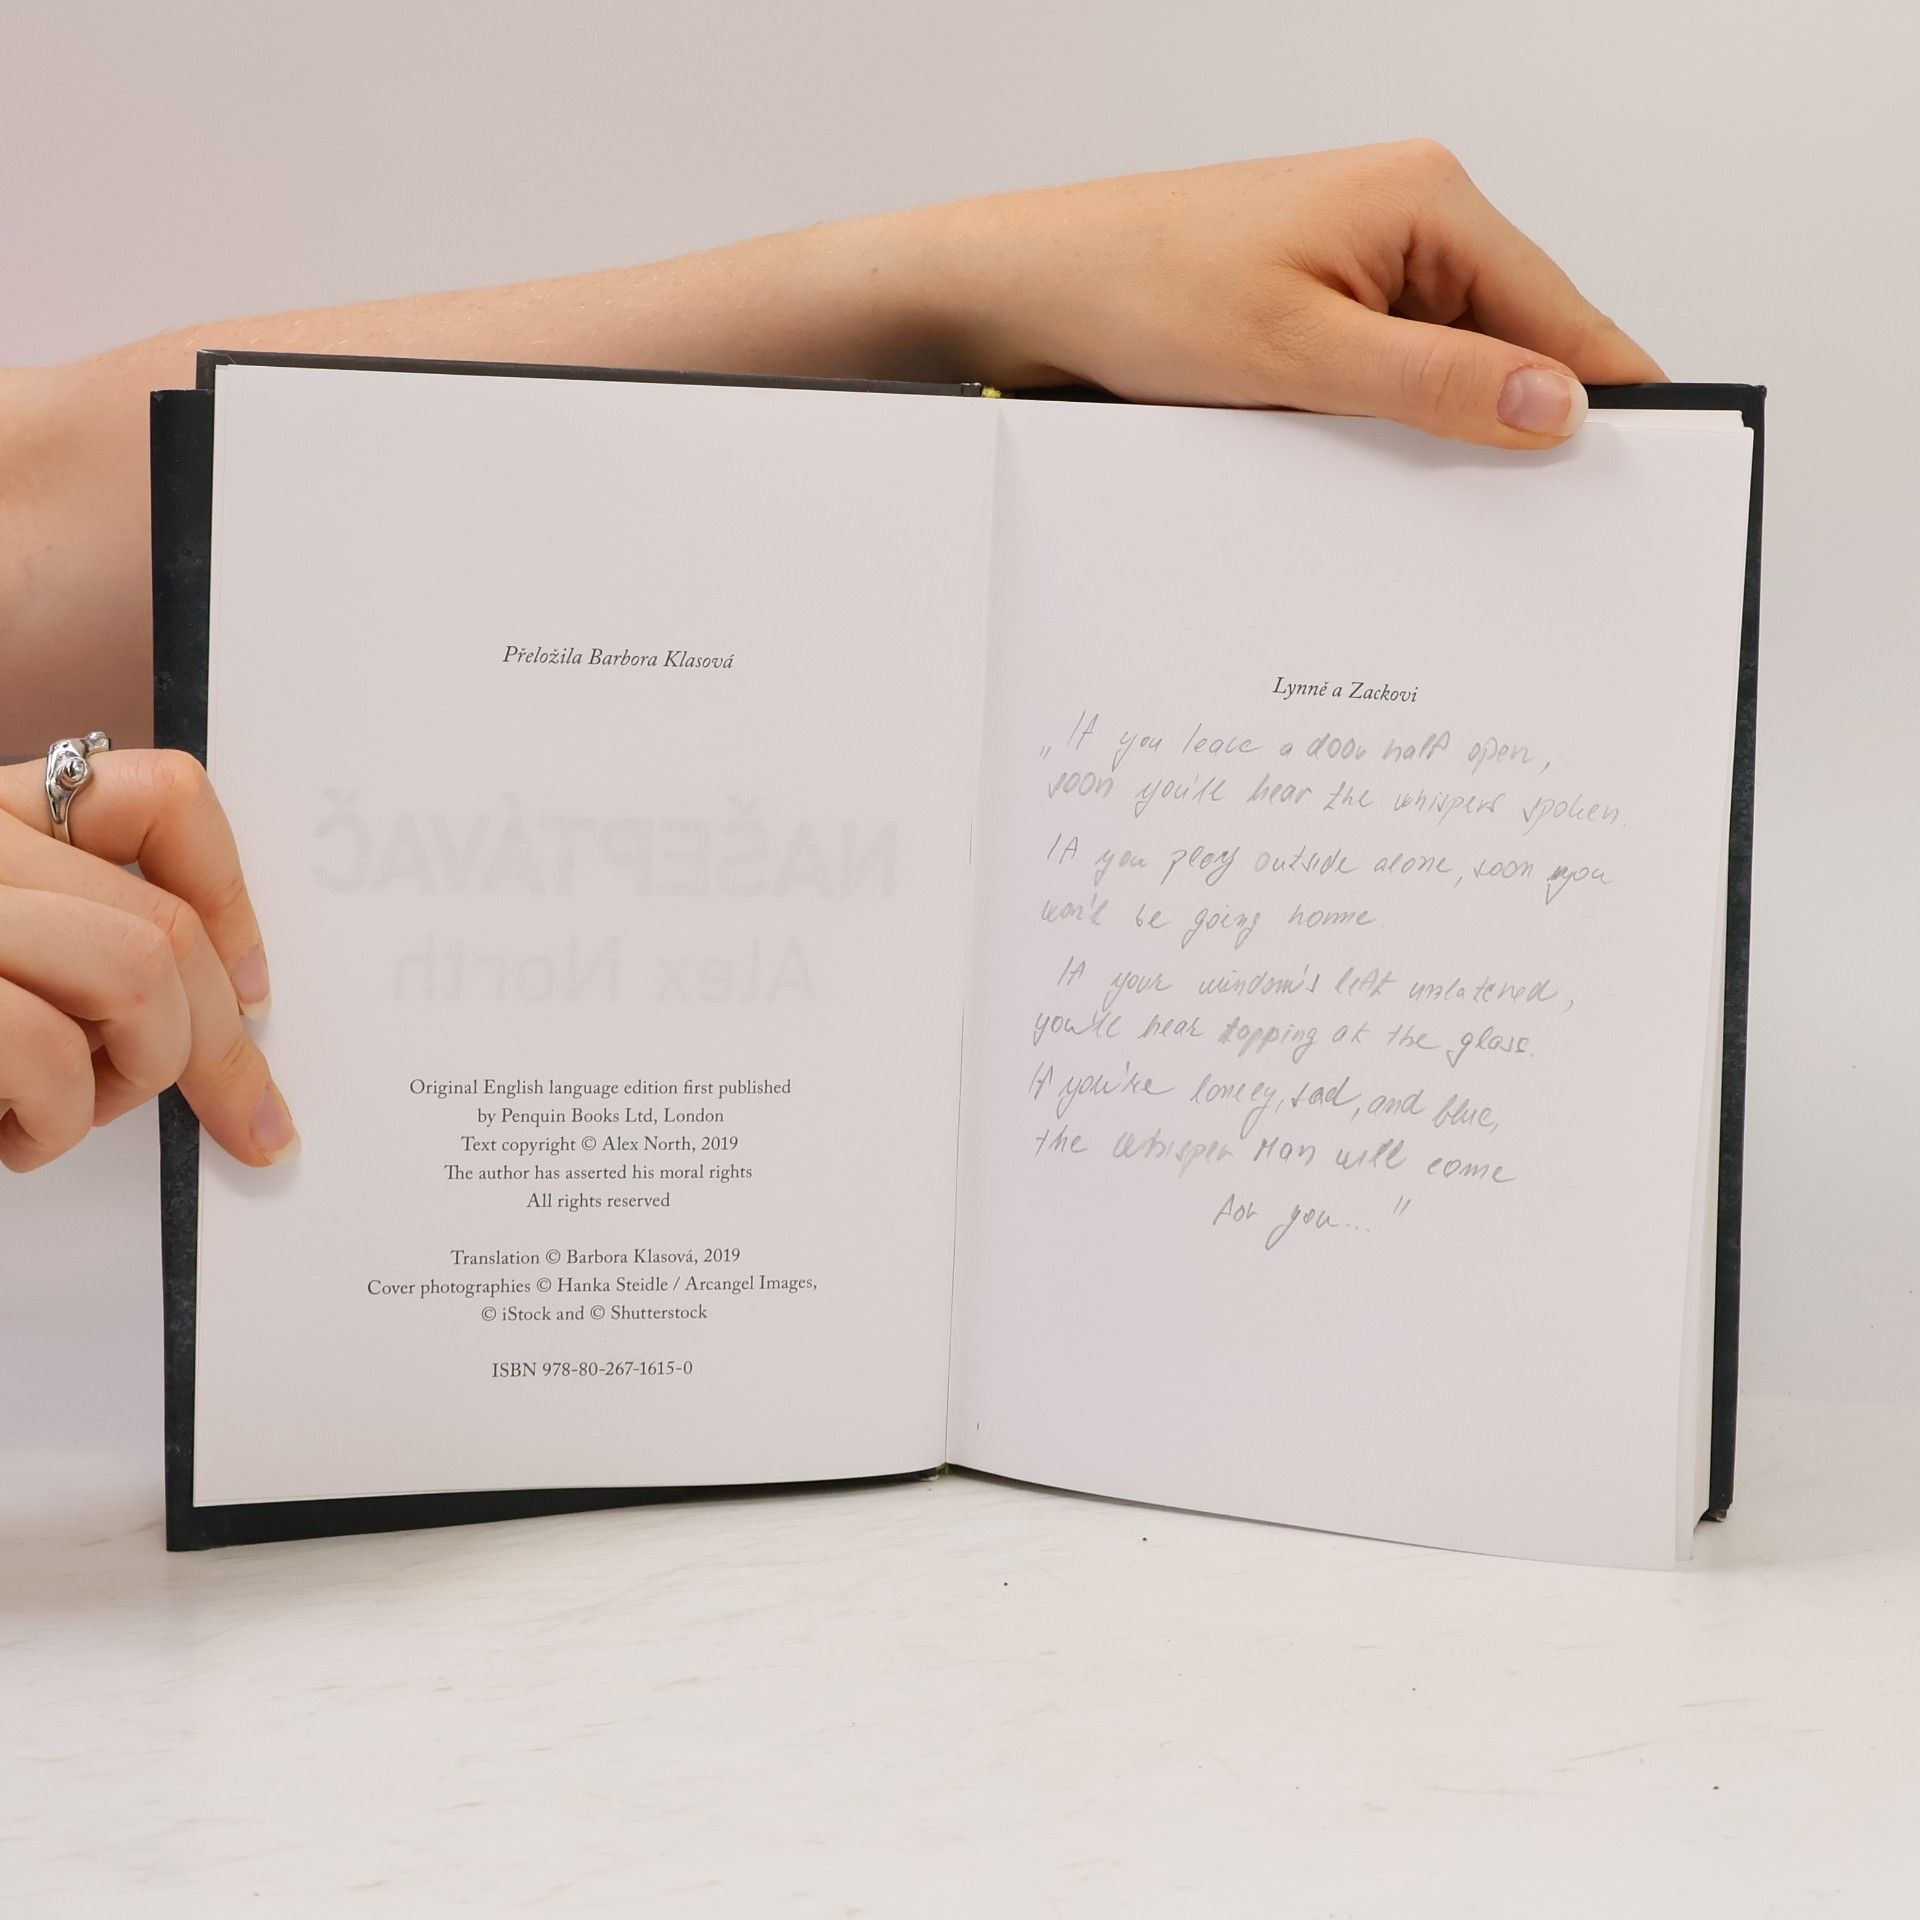 Přeložila Barbora Klasová
NAŠEPTÁVAČ
Alex North
Original English language edition first published
by Penquin Books Ltd, London
Text copyright © Alex North, 2019
The author has asserted his moral rights
All rights reserved
Translation © Barbora Klasová, 2019
Cover photographies © Hanka Steidle / Arcangel Images,
© iStock and © Shutterstock
ISBN 978-80-267-1615-0
Lynně a Zackovi
„If you leave a door half open,
soon you'll hear the whispers spoken.
If you play outside alone, soon you
won't be going home.
If your window's left unlatched,
you'll hear tapping at the glass.
If you're lonely, sad, and blue,
the Whisper Man will come
for you..."